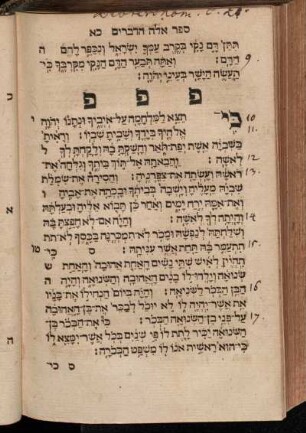 Deuteronom. C. 21.
ספר אלה הדברים כא
תתן דם נקי בקרב עמך ישראל ונכפר להם
הדם: ואתה תבער הדם הנקי מקרבך כי 9.
תעשה הישר בעיני יהוה:
פ פ פ
כי תצא למלחמה על איביך ונתנו יהוה 10
אלהיך בידך ושבית שביו: וראית 11.
בשביה אשת יפת תאר וחשקת בה ולקחת לך
לאשה: והבאתה אל תוך ביתך וגלחה את 12.
ראשה ועשתה את צפרניה: והסירה את שמלת 13.
שביה מעליה וישבה בביתך ובכתה את אביה
ואת אמה ירח ימים ואחר כן תבוא אליה ובעלתה
והיתה לך לאשה: והיה אם לא חפצת בה 14
ושלחתה לנפשה ומכר לא תמכרנה בכסף לא תת
תתעמר בה תחת אשר עניתה: ס כי 15.
תהיין לאיש שתי נשים האחת אהובה והאחת ש
שנואה וילדו לו בנים האהובה והשנואה והיה
הבן הבכר לשניאה: והיה ביום הנחילו את בניו 16
את אשר יהיה לו לא יוכל לבכר את בן האהובה
על פני בן השנואה הבכר: כי את הבכר בן 17.
השנואה יכיר לתת לו פי שנים בכל אשר ימצא לו
כי הוא ראשית אנו לו משפט הבכרה:
ס כי